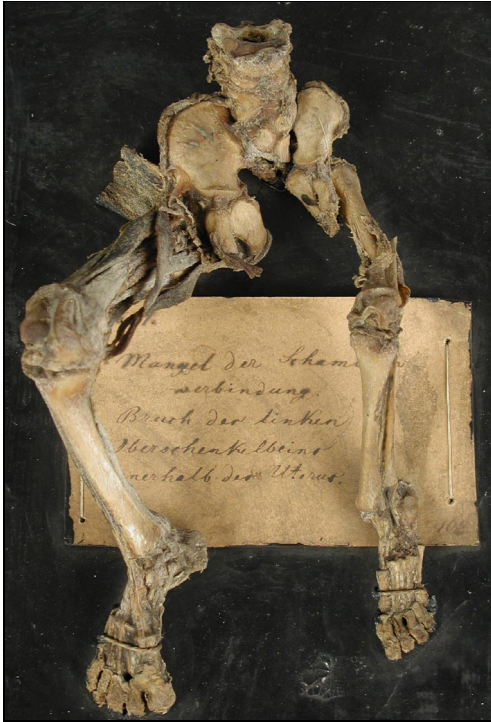 Mangel der Scham
verbindung.
Bruch des linken
Oberschenkelbeins
nerhalb des Uterus.